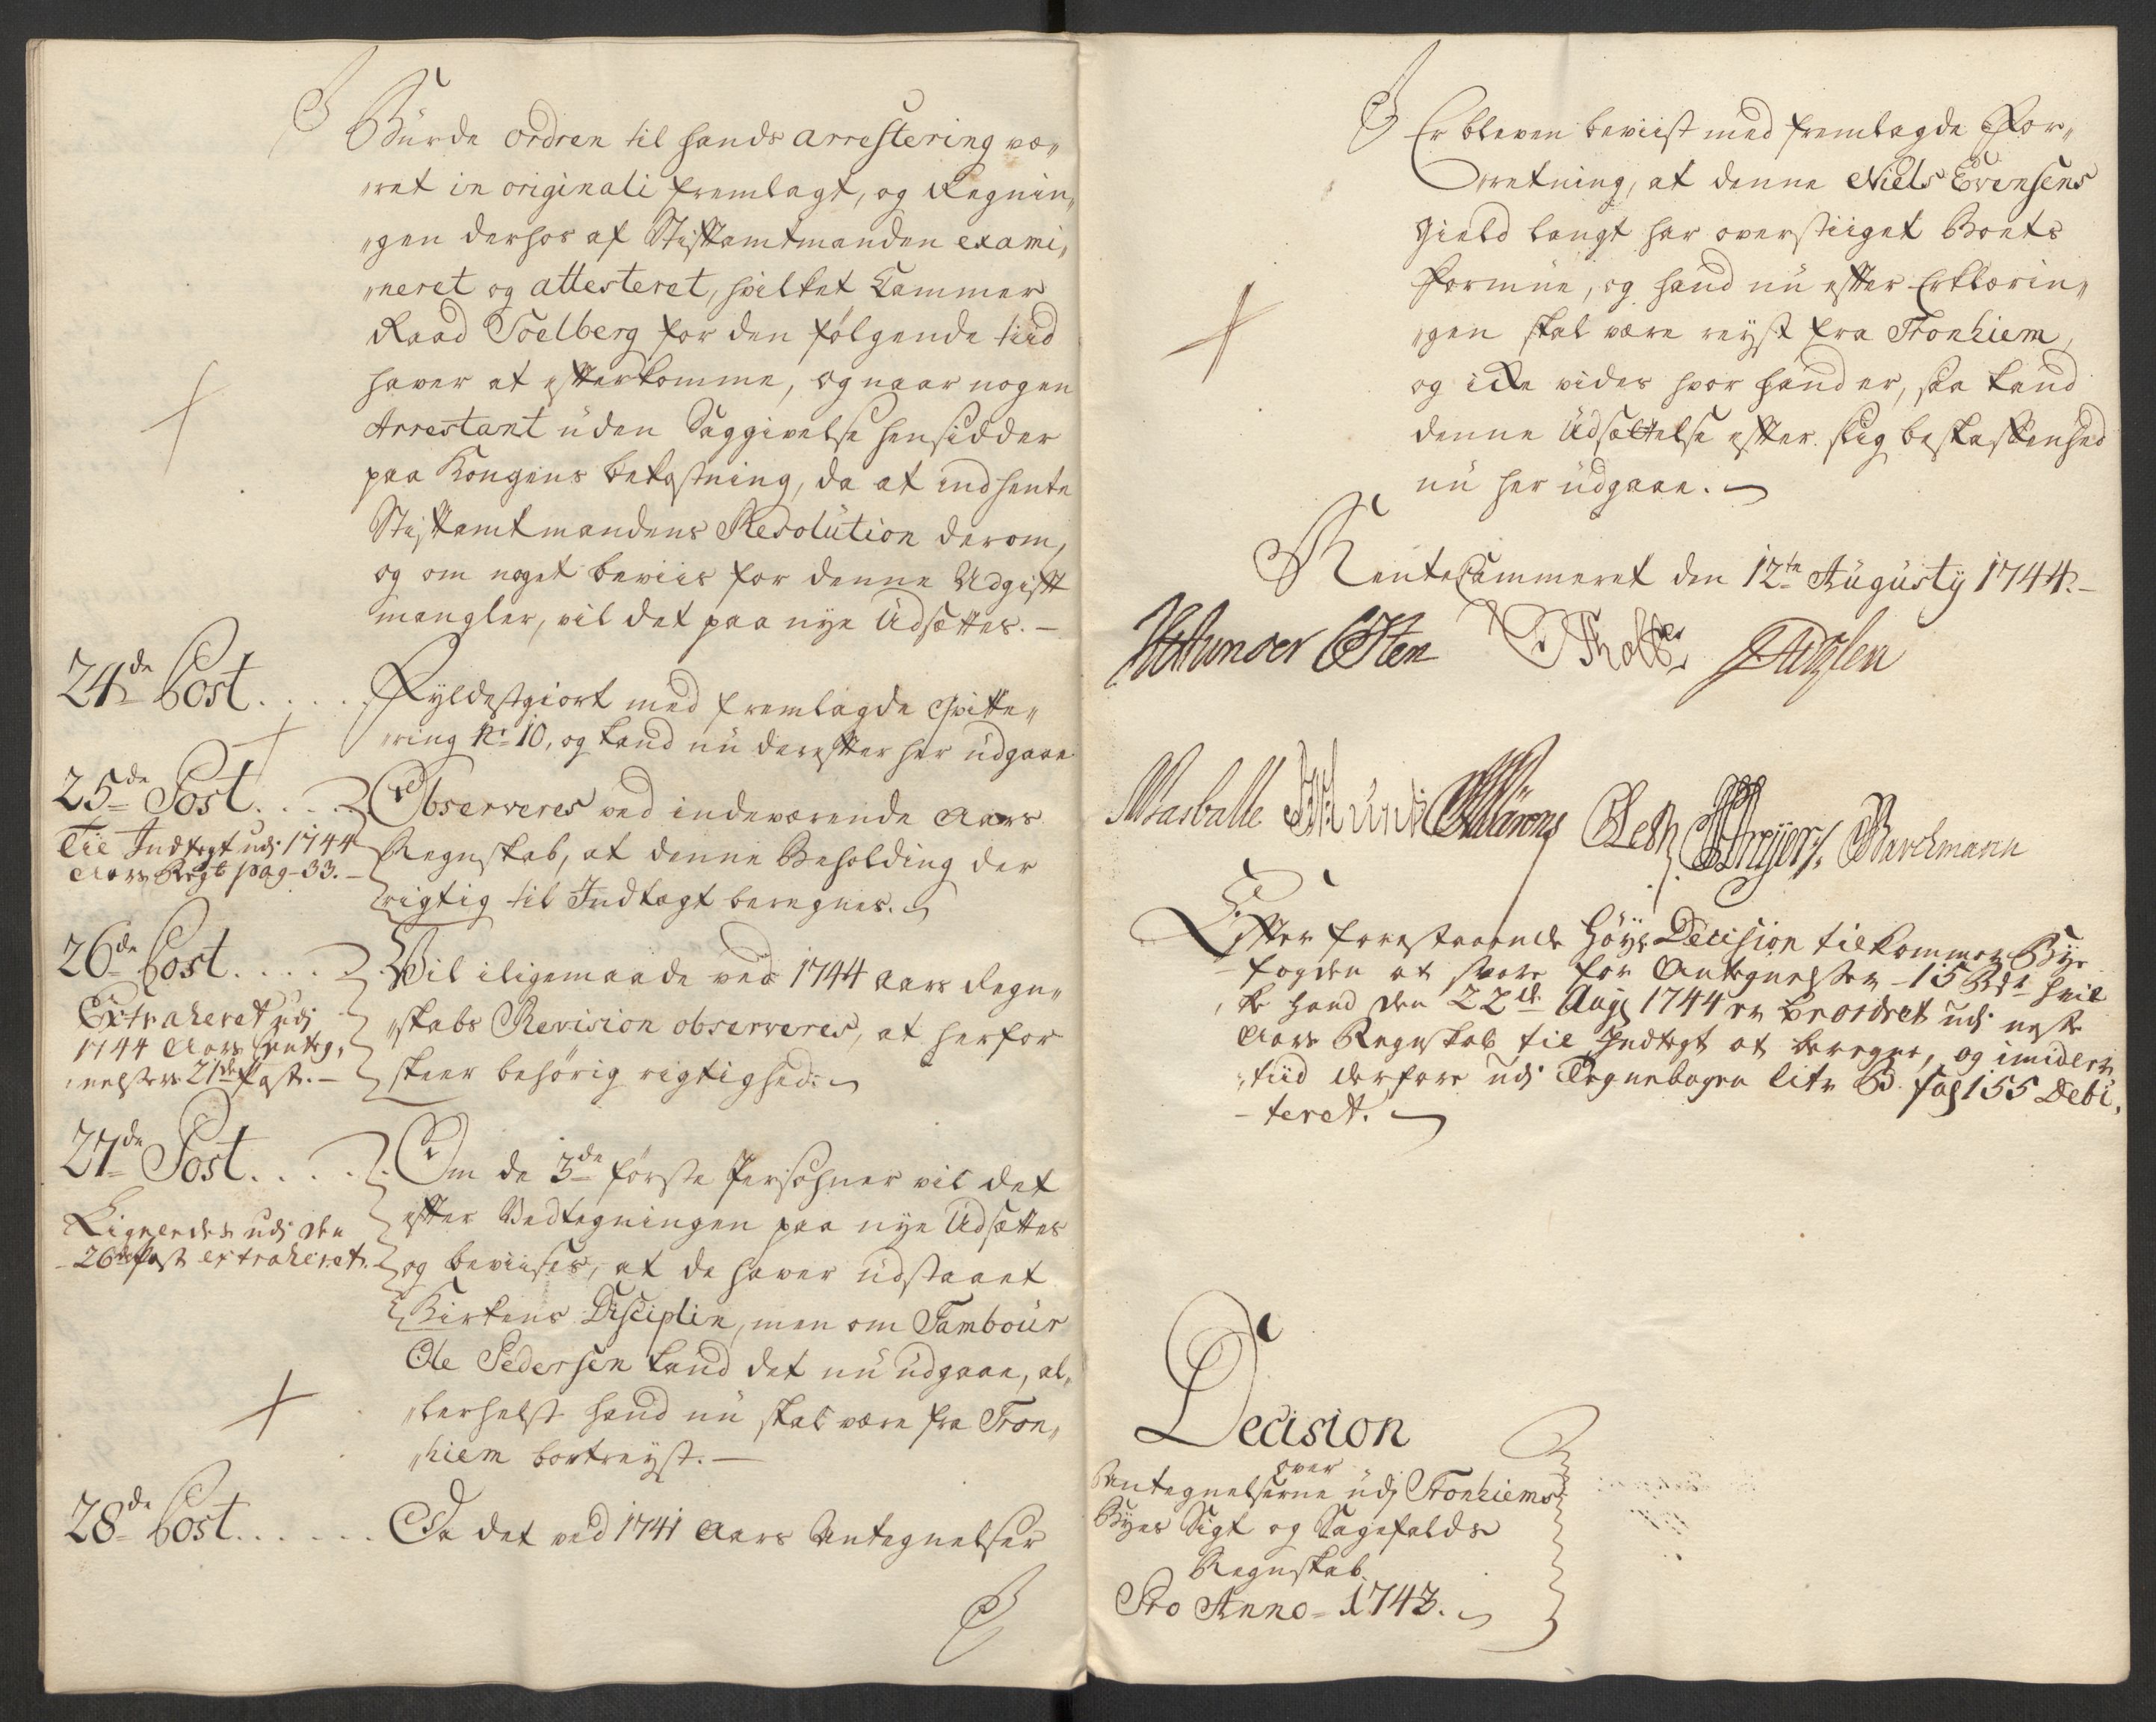 Burde ordren til hands arrestering væ„
„ret in originali fremlagt, og Regnin„
„gen derhos af Stiftamtmanden exami„
„neret og attesteret, hvilket Cammer
Raad Soelberg for den følgende tiid
haver at efterkomme, og naar nogen
Arrestant uden Saggivelse hensidder
paa Kongens bekostning, da at indhente
Stiftamtmandens Resolution derom,
og om noget beviis for denne Udgift
mangler, vil det paa nye Udsættes. —
24de Post . . . . Fyldestgiort med fremlagde Qvitte„
„ring No 10, og kand nu derefter her udgaae
25de Post . . . . Observeres ved indeværende Aars
Regnskab, at denne Beholding der
rigtig til Indtægt beregnes.
Til Indtægt udj 1744
Aars Regsk pag 33. —
26de Post . . . . Vil iligemaade ved 1744 Aars Regn„
„skabs Revision observeres, at herfor
skeer behørig rigtighed.
Extraheret udj
1744 Aars Anteg„
„nelsers 21de Post. —
27de Post . . . . Om de 3de første Persohner vil det
efter Vedtegningen paa nye Udsættes
og beviises, at de haver udstaaet
Kirkens Disciplin, men om Tambour
Ole Pedersen kand det nu udgaae, al„
„lerhelst hand nu skal være fra Tron„
„hiem bortreyst. —
Ligeledes udj den
26de Post extraheret.
28de Post . . . . . . Da det ved 1741 Aars Antegnelser
Er bleven beviist med fremlagde For„
„retning, at denne Niels Evensens
Gield langt har overstiiget Boets
Formue, og hand nu efter Erklærin„
„gen skal være reyst fra Tronhiem,
og icke vides hvor hand er, saa kand
denne Udsættelse efter slig beskaffenhed
nu her udgaae.
RenteCammeret den 12te Augusty 1744. —
Holst
Barchmann
Efter forestaaende Høye Decision tilkommer Bye
fogden at svare for Antegnelser 15 Rdr hvil
ke hand den 22de Aug 1744 er beordret udj neste
Aars Regnskab til Indtægt at beregne, og imidler
„tiid derfore udj Tegnebogen litr B. fol 155 Debi„
teret.
Decision
over
Antegnelserne udj Tronhiems
Byes Sigt og Sagefalds
Regnskab
Pro Anno 1743.